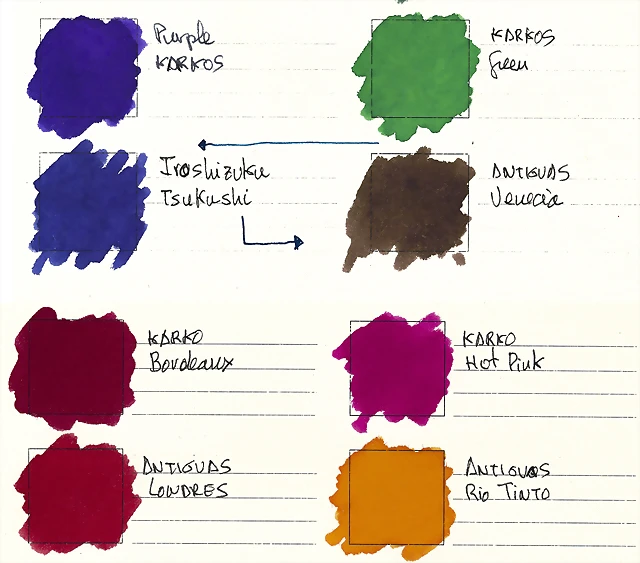 Purple
KARKOS
KARKOS
Green
Iroshizuku
Tsukushi
ANTIGUAS
Venecia
KARKO
Bordeaux
KARKO
Hot Pink
ANTIGUAS
LONDRES
ANTIGUAS
Rio TINTO